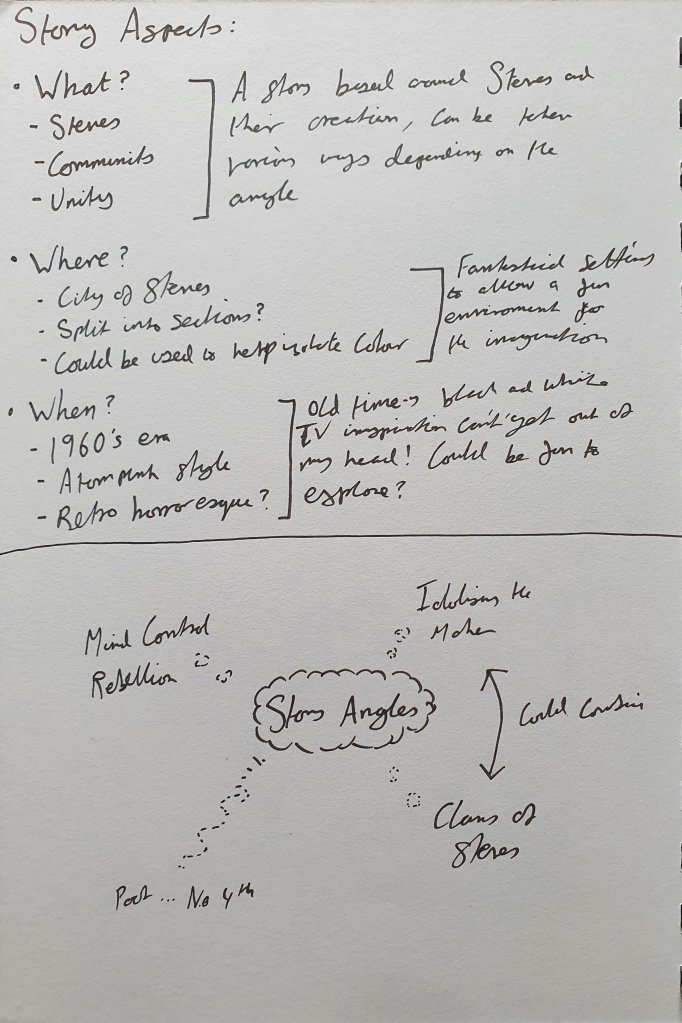 Story Aspects:
• What?
- Steves
- Community
- Unity
A story based around Steves and
their creation, Can be taken
various ways depending on the
angle
• Where?
- City of Steves
- Split into sections?
- Could be used to help isolate Colour
Fantastical setting
to allow a fun
enviroment for
the imagination
• When?
- 1960's era
- Atompunk style
- Retro horroresque?
Old timey black and white
TV inspiration can't get out of
my head! Could be fun to
explore?
Mind Control
Rebellion
Idolising the
Maker
Story Angles
Could Combine
Clans of
Steves
Poof... No 4th